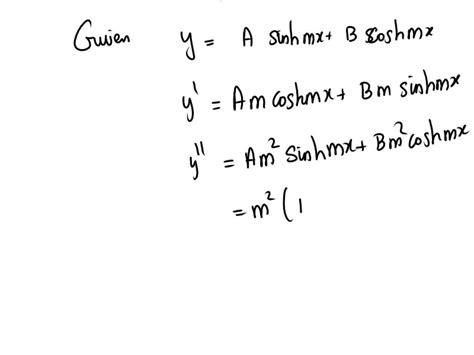 Given y = A sinhmx + B coshmx
y' = Am coshmx + Bm sinhmx
y'' = Am² sinhmx + Bm² coshmx
= m² (